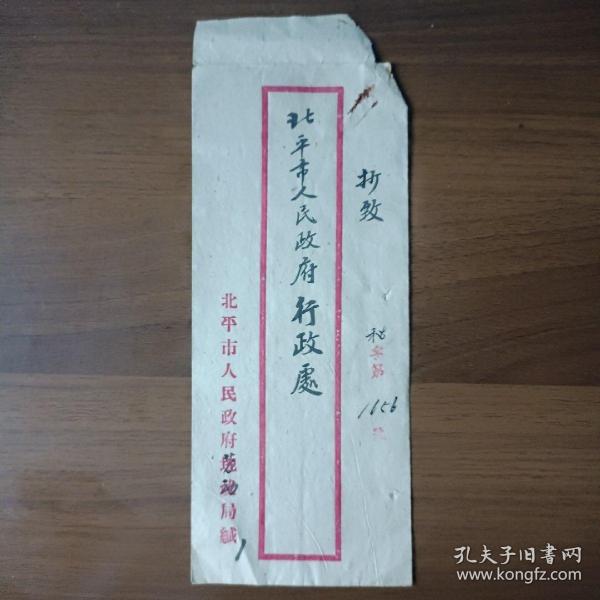 折致
秘字第1656號
北平市人民政府行政處
北平市人民政府劳动局緘
孔夫子旧书网
www.kongfz.com